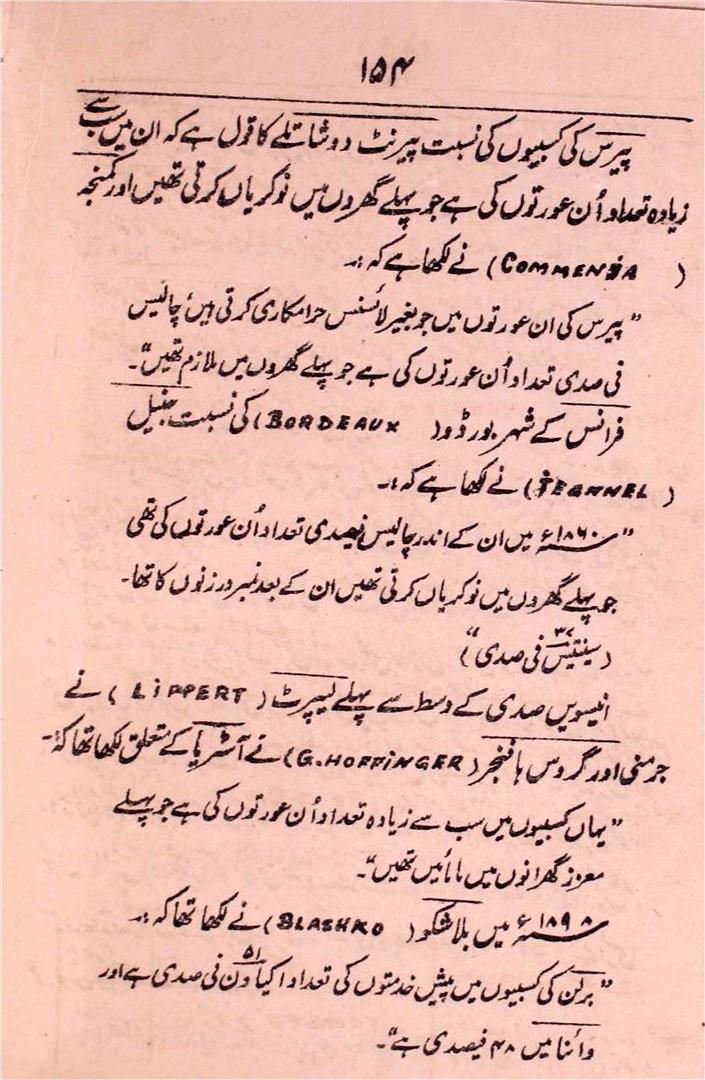 ۱۵۴
پیرس کی کسبیوں کی نسبت پیرنٹ دوشاتلے کا قول ہے کہ ان میں سب سے
زیادہ تعداد اُن عورتوں کی ہے جو پہلے گھروں میں نوکریاں کرتی تھیں اور کمنجہ
(COMMENJA) نے لکھا ہے کہ :۔
”پیرس کی ان عورتوں میں جو بغیر لائسنس حرامکاری کرتی ہیں، چالیس
فی صدی تعداد اُن عورتوں کی ہے جو پہلے گھروں میں ملازم تھیں“۔
فرانس کے شہر بورڈو (BORDEAUX) کی نسبت جنیل
(JEANNEL) نے لکھا ہے کہ :۔
”۱۸۶۰ء میں ان کے اندر چالیس فیصدی تعداد اُن عورتوں کی تھی
جو پہلے گھروں میں نوکریاں کرتی تھیں ان کے بعد نمبر درزنوں کا تھا۔
(سینتیس ۳۷ فی صدی)“
انیسویں صدی کے وسط سے پہلے لیپرٹ (LIPPERT) نے
جرمنی اور گروس ہافنجر (G.HOFFINGER) نے آسٹریا کے متعلق لکھا تھا کہ:۔
”یہاں کسبیوں میں سب سے زیادہ تعداد اُن عورتوں کی ہے جو پہلے
معزز گھرانوں میں مامائیں تھیں“۔
۱۸۹۸ء میں بلاشکو (BLASHKO) نے لکھا تھا کہ :۔
”برلن کی کسبیوں میں پیش خدمتوں کی تعداد اکیاون ۵۱ فی صدی ہے اور
وائنا میں ۴۸ فیصدی ہے“۔